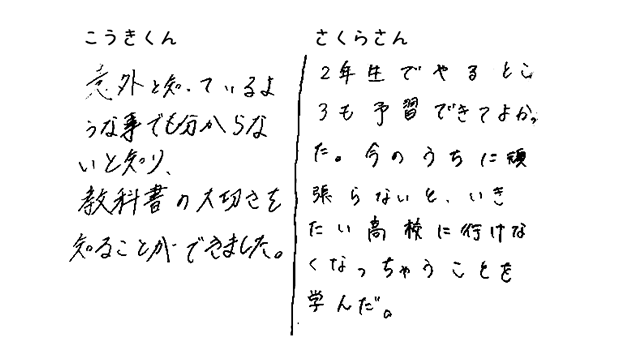 こうきくん
意外と知っているよ
うな事でも分からな
いと知り、
教科書の大切さを
知ることができました。
さくらさん
2年生でやるとこ
ろも予習できてよかっ
た。今のうちに頑
張らないと、いき
たい高校に行けな
くなっちゃうことを
学んだ。